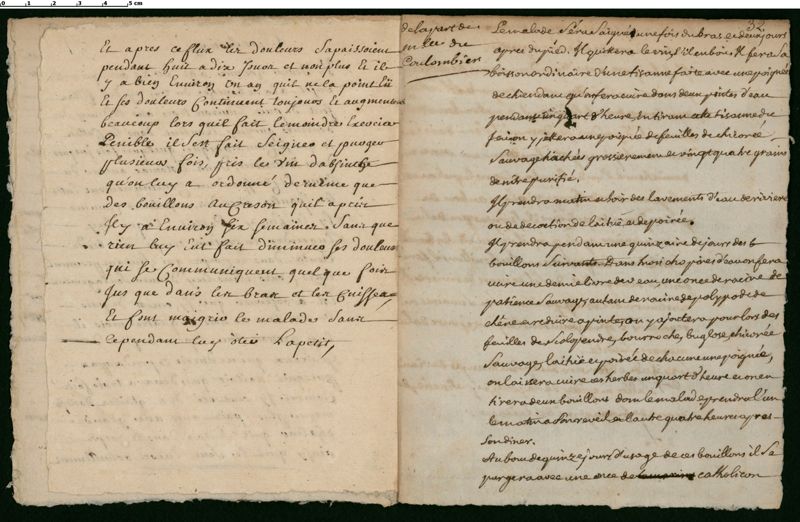 Et apres ce flux les douleurs sapaissoient
pendant huit a dix Jours et non plus et il
y a bien Environ un an quil ne la point Eü
et ses douleurs Continuent toujours et augmentent
beaucoup lors quil fait le moindre Exercice
Penible il sest fait seigner et purger
plusieurs fois, pris les vin dabsinthe
qu'on luy a ordonné de meme que
des bouillons au Creson quil a pris
Il y a Environ six semaines sans que
rien luy Eut fait diminuer ses douleurs
qui se Communiquent quel que fois
Jus que dans les bras et les Cuisses,
et font maigrir le malades sans
cependant luy oter Lapetit,
de la part de
mr lee du
Coulombier
32
Le malade sera saigné une fois du bras et deux jours
apres du pied. Il quitera le vin s'il en bois. Il fera sa
boisson ordinaire d'une tisanne faite avec une poignée
de chiendant qu'on fera cuire dans deux pintes d'eau
pendant un quart d'heure, En tirant cette tisanne du
feu on y jetera une poignée de feuilles de chicorée
sauvage hachée grossierement et vingt quatre grains
de nitre purifié.
Il prendra matin et soir des lavements d'eau de riviere
ou de decoction de laitüe et de poirée.
Il prendra pendant une quinzaine de jours des
bouillons suivants. Dans trois chopines d'eau on fera
cuire une demie livre de veau, une once de racine de
patience sauvage, autant de racine de polypode de
chêne et reduire a pinte, on y ajoutera pour lors des
feuilles de scolopendre, bourroche, buglose, chicorée
sauvage, laitüe et poirée de chacune une poignée,
on laissera cuire ces herbes un quart d'heure et on en
tirera deux bouillons dont le malade prendra l'un
le matin a son reveil et l'autre quatre heures apres
son diner.
Au bout de quinze jours d'usage de ces bouillons il se
purgera avec une once de catholicon